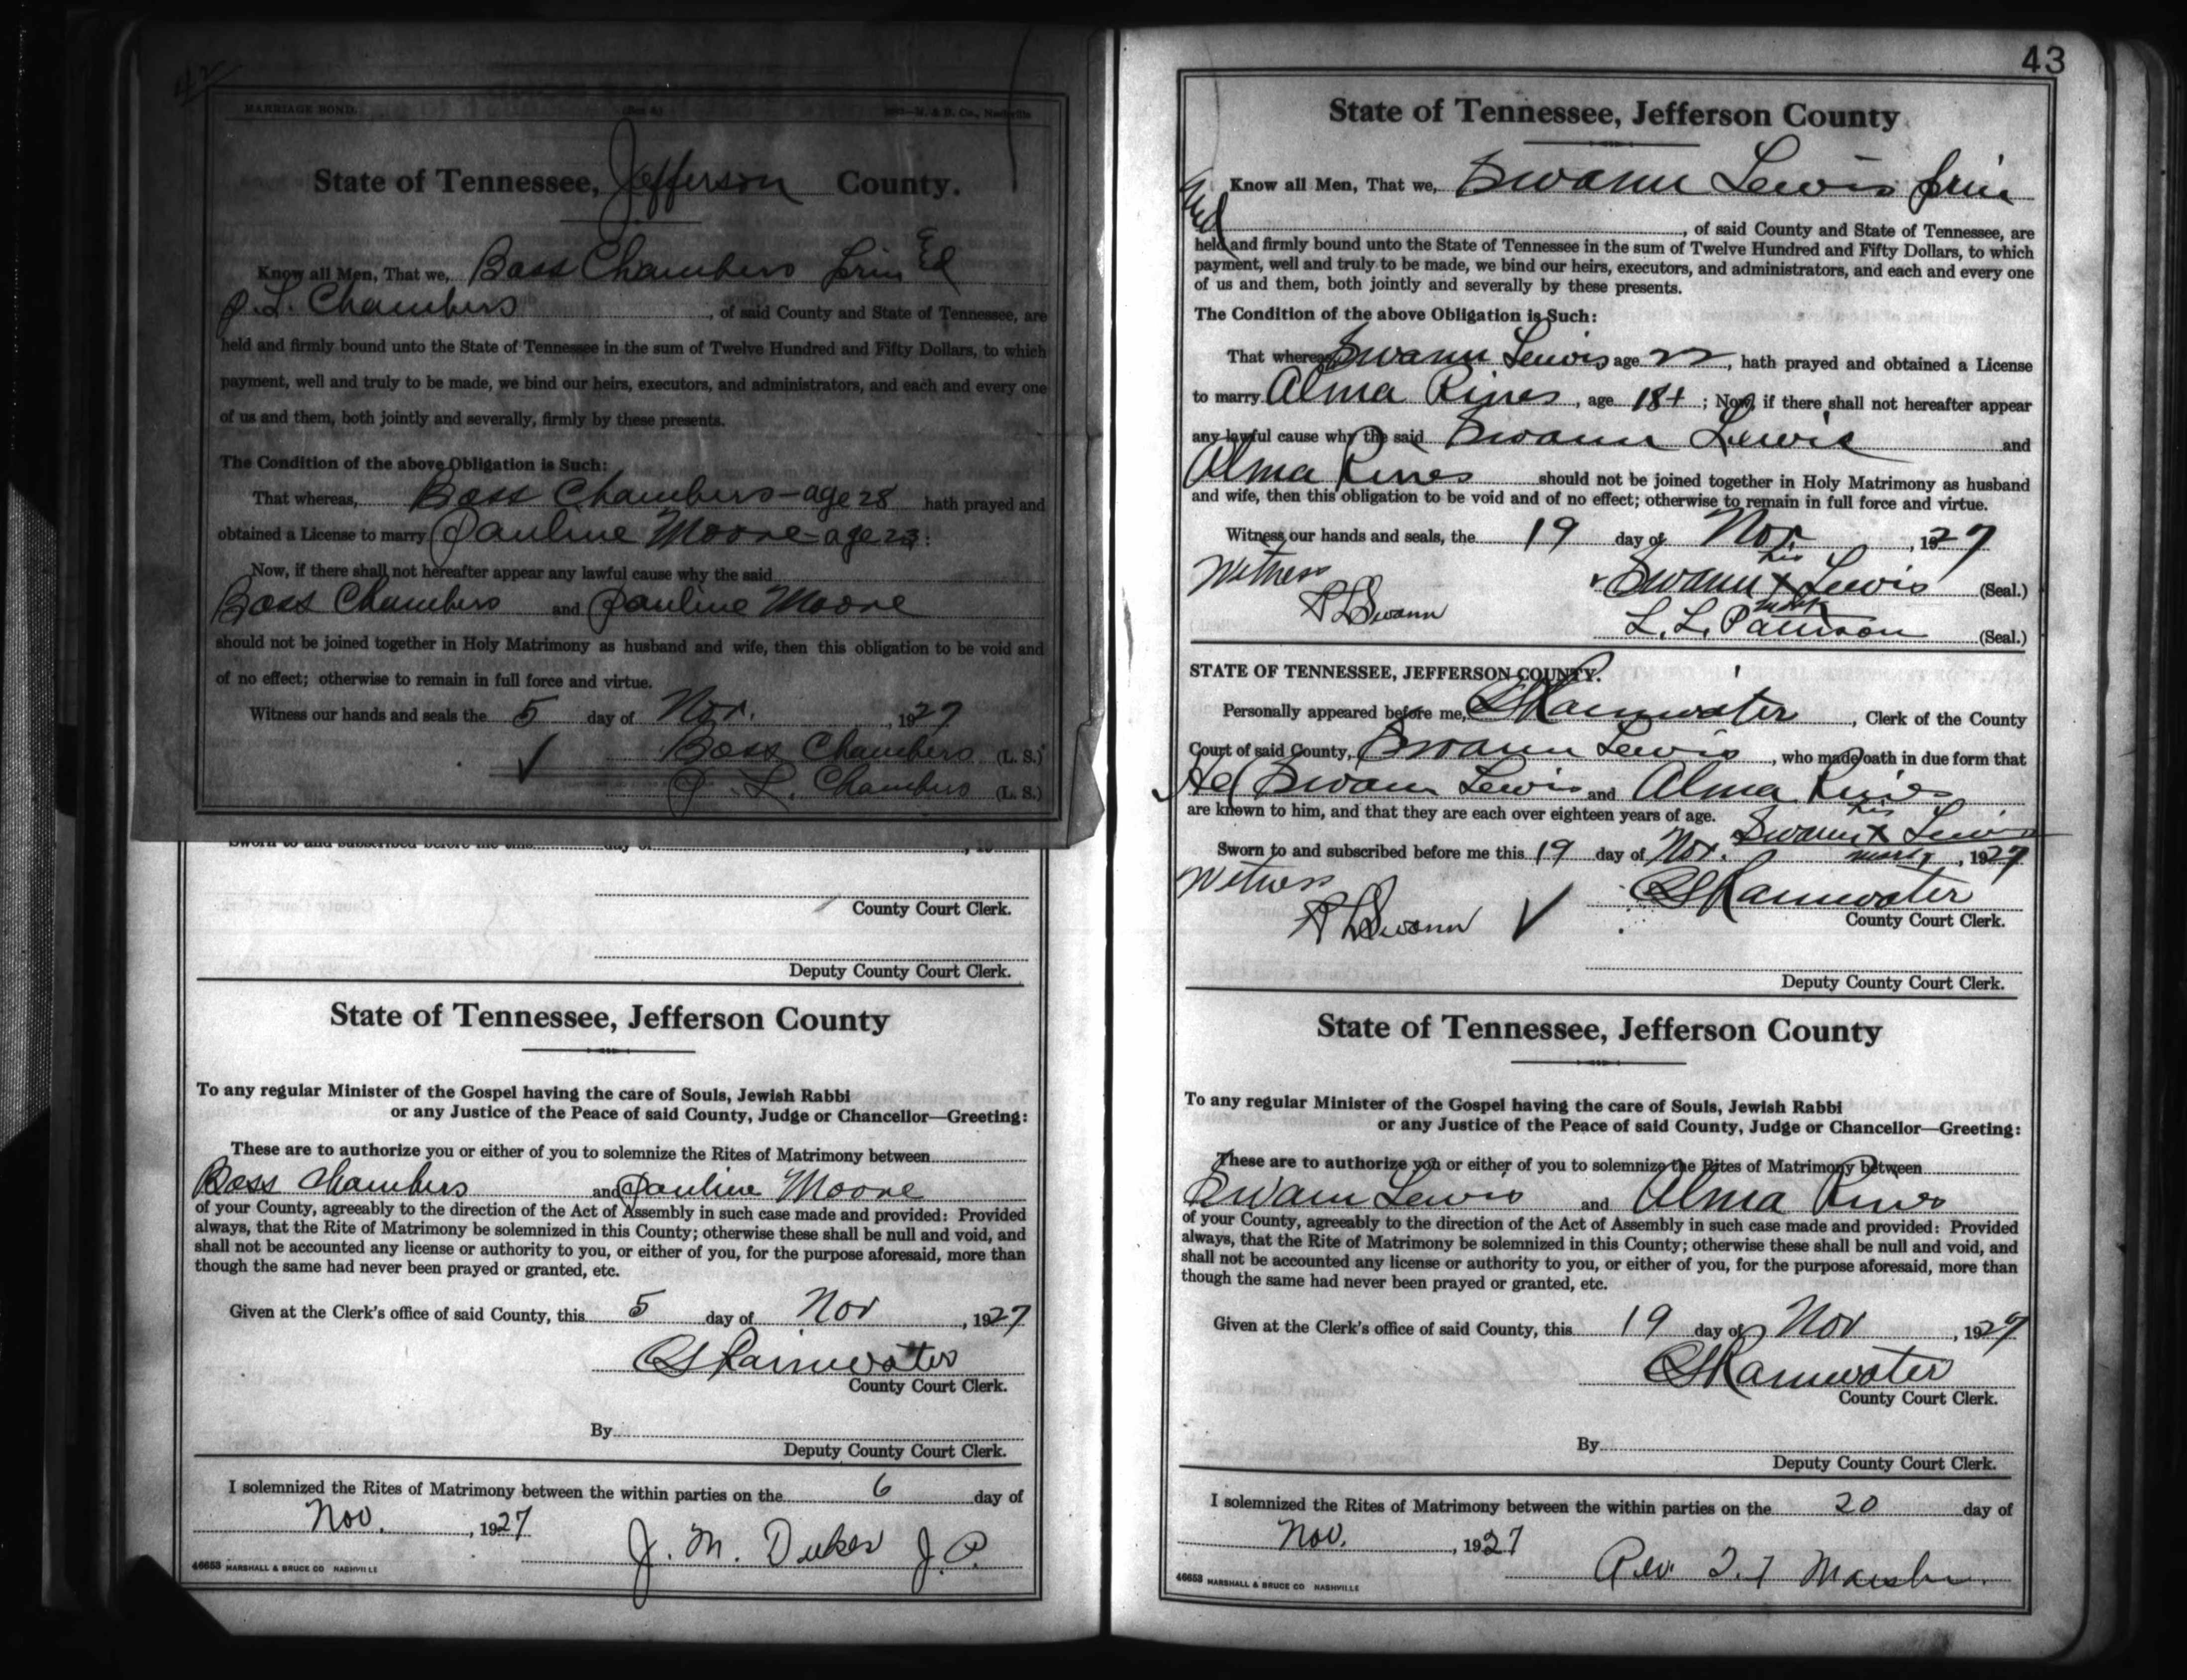 42
MARRIAGE BOND.
State of Tennessee, Jefferson County.
Know all Men, That we, Boss Chambers
J. L. Chambers, of said County and State of Tennessee, are
held and firmly bound unto the State of Tennessee in the sum of Twelve Hundred and Fifty Dollars, to which
payment, well and truly to be made, we bind our heirs, executors, and administrators, and each and every one
of us and them, both jointly and severally, firmly by these presents.
The Condition of the above Obligation is Such:
That whereas, Boss Chambers - age 28 hath prayed and
obtained a License to marry Pauline Moore - age 23:
Now, if there shall not hereafter appear any lawful cause why the said
Boss Chambers and Pauline Moore
should not be joined together in Holy Matrimony as husband and wife, then this obligation to be void and
of no effect; otherwise to remain in full force and virtue.
Witness our hands and seals the 5 day of Nov. , 1927
Boss Chambers (L. S.)
J. L. Chambers (L. S.)
Sworn to and subscribed before me this day of , 19
County Court Clerk.
Deputy County Court Clerk.
State of Tennessee, Jefferson County
To any regular Minister of the Gospel having the care of Souls, Jewish Rabbi
or any Justice of the Peace of said County, Judge or Chancellor—Greeting:
These are to authorize you or either of you to solemnize the Rites of Matrimony between
Boss Chambers and Pauline Moore
of your County, agreeably to the direction of the Act of Assembly in such case made and provided: Provided
always, that the Rite of Matrimony be solemnized in this County; otherwise these shall be null and void, and
shall not be accounted any license or authority to you, or either of you, for the purpose aforesaid, more than
though the same had never been prayed or granted, etc.
Given at the Clerk's office of said County, this 5 day of Nov , 1927
C S Rainwater
County Court Clerk.
By
Deputy County Court Clerk.
I solemnized the Rites of Matrimony between the within parties on the 6 day of
Nov. , 1927
J. M. Duker J. P.
46653 MARSHALL & BRUCE CO NASHVILLE
43
State of Tennessee, Jefferson County
Know all Men, That we, Swann Lewis prin
and
, of said County and State of Tennessee, are
held and firmly bound unto the State of Tennessee in the sum of Twelve Hundred and Fifty Dollars, to which
payment, well and truly to be made, we bind our heirs, executors, and administrators, and each and every one
of us and them, both jointly and severally by these presents.
The Condition of the above Obligation is Such:
That whereas Swann Lewis age 22, hath prayed and obtained a License
to marry Alma Rines, age 18+; Now, if there shall not hereafter appear
any lawful cause why the said Swann Lewis and
Alma Rines should not be joined together in Holy Matrimony as husband
and wife, then this obligation to be void and of no effect; otherwise to remain in full force and virtue.
Witness our hands and seals, the 19 day of Nov. , 1927
his
Witness Swann X Lewis (Seal.)
mark
R L Swann L. L. (Seal.)
STATE OF TENNESSEE, JEFFERSON COUNTY.
Personally appeared before me, C S Rainwater, Clerk of the County
Court of said County, Swann Lewis, who made oath in due form that
He Swann Lewis and Alma Rines
are known to him, and that they are each over eighteen years of age.
his
Swann X Lewis
mark
Sworn to and subscribed before me this 19 day of Nov. , 1927
Witness C S Rainwater
R L Swann County Court Clerk.
Deputy County Court Clerk.
State of Tennessee, Jefferson County
To any regular Minister of the Gospel having the care of Souls, Jewish Rabbi
or any Justice of the Peace of said County, Judge or Chancellor—Greeting:
These are to authorize you or either of you to solemnize the Rites of Matrimony between
Swann Lewis and Alma Rines
of your County, agreeably to the direction of the Act of Assembly in such case made and provided: Provided
always, that the Rite of Matrimony be solemnized in this County; otherwise these shall be null and void, and
shall not be accounted any license or authority to you, or either of you, for the purpose aforesaid, more than
though the same had never been prayed or granted, etc.
Given at the Clerk's office of said County, this 19 day of Nov , 1927
C S Rainwater
County Court Clerk.
By
Deputy County Court Clerk.
I solemnized the Rites of Matrimony between the within parties on the 20 day of
Nov. , 1927
Rev.
46653 MARSHALL & BRUCE CO NASHVILLE